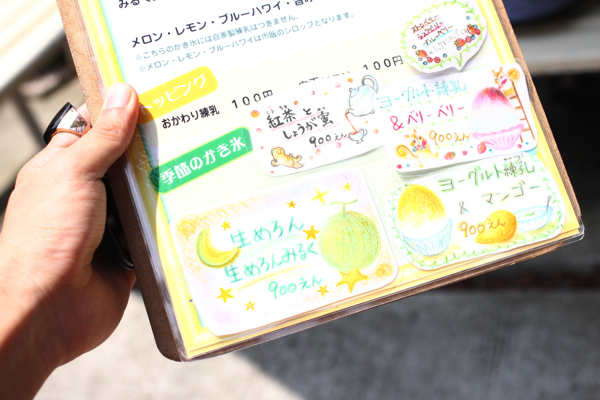 メロン・レモン・ブルーハワイ・
※こちらのかき氷には自家製練乳はつきません。
※メロン・レモン・ブルーハワイは市販のシロップとなります。
トッピング
おかわり練乳 100円
100円
季節のかき氷
紅茶と
しょうが蜜
900えん
ストロベリー
ラズベリー
ブルーベリー
ヨーグルト練乳
&ベリーベリー
900えん
生めろん
生めろんみるく
900えん
ヨーグルト練乳
& マンゴー
900えん